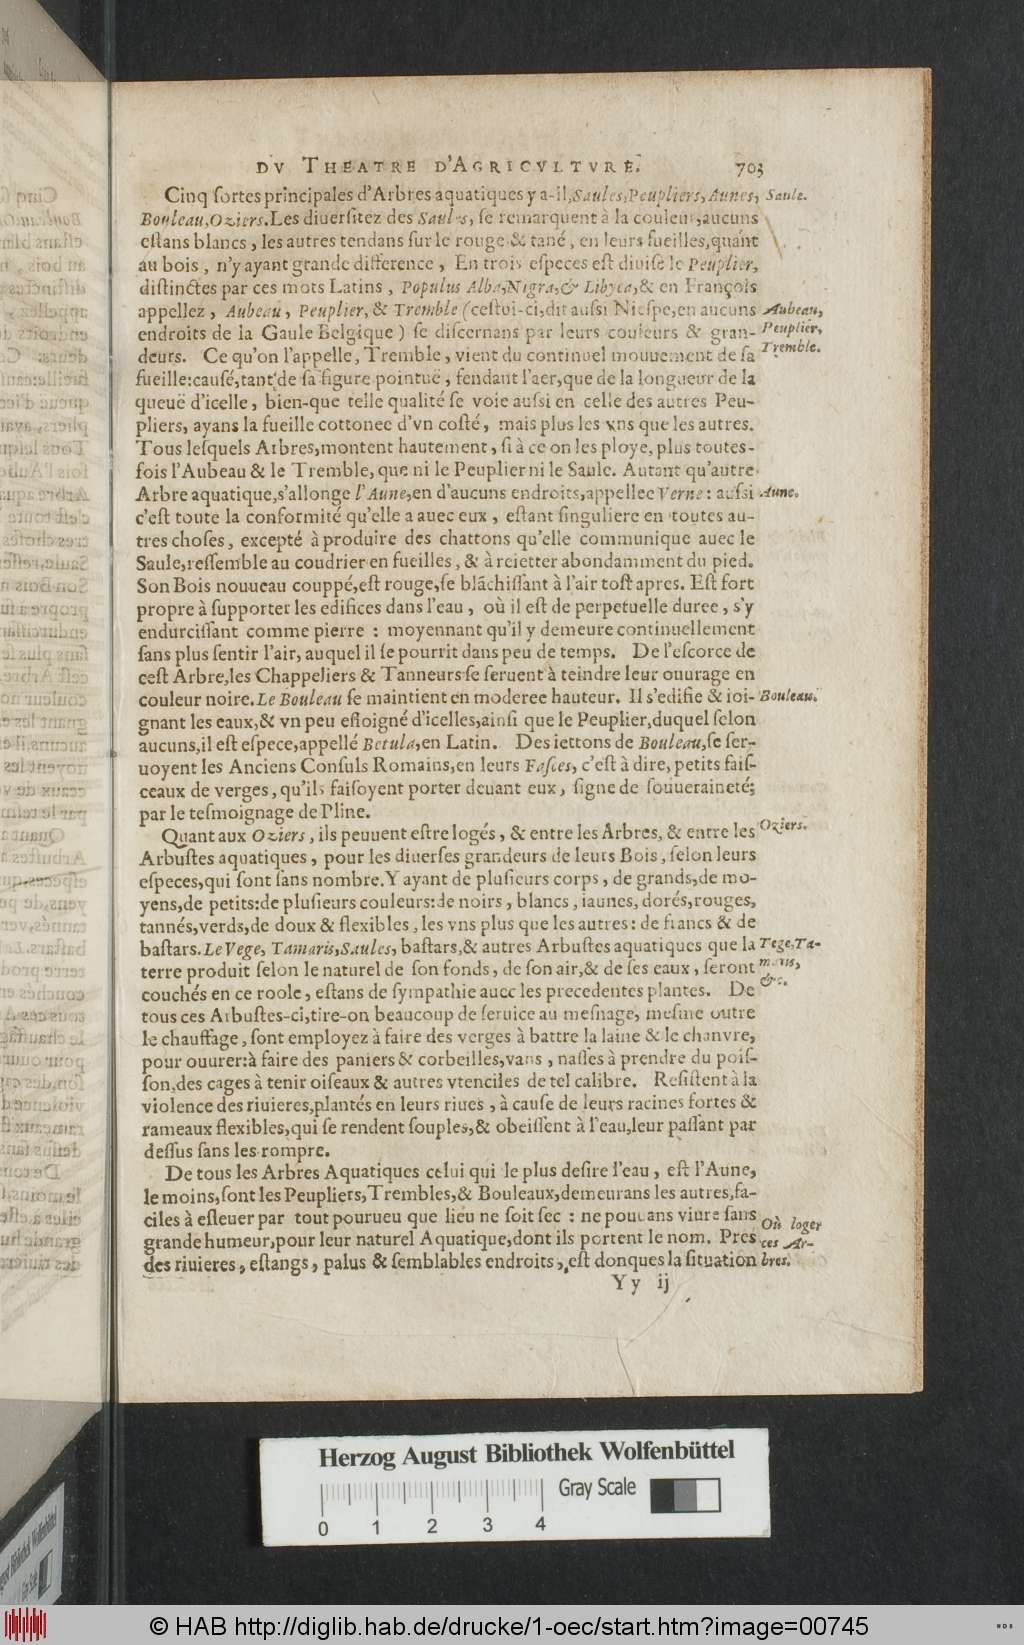 DV THEATRE D'AGRICVLTVRE. 703
Cinq ſortes principales d'Arbres aquatiques y a-il, Saules, Peupliers, Aunes, Saule.
Bouleau, Oziers. Les diuerſitez des Saules, ſe remarquent à la couleur, aucuns
eſtans blancs, les autres tendans ſur le rouge & tané, en leurs fueilles, quant
au bois, n'y ayant grande difference, En trois eſpeces eſt diuiſé le Peuplier,
diſtinctes par ces mots Latins, Populus Alba, Nigra, & Libyca, & en François
appellez, Aubeau, Peuplier, & Tremble (ceſtoi-ci, dit auſsi Nieſpe, en aucuns Aubeau,
endroits de la Gaule Belgique) ſe diſcernans par leurs couleurs & gran- Peuplier,
deurs. Ce qu'on l'appelle, Tremble, vient du continuel mouuement de ſa Tremble.
fueille: cauſé, tant de ſa figure pointuë, fendant l'aer, que de la longueur de la
queuë d'icelle, bien-que telle qualité ſe voie auſsi en celle des autres Peu-
pliers, ayans la fueille cottonee d'vn coſté, mais plus les vns que les autres.
Tous leſquels Arbres, montent hautement, ſi à ce on les ploye, plus toutes-
fois l'Aubeau & le Tremble, que ni le Peuplier ni le Saule. Autant qu'autre
Arbre aquatique, s'allonge l'Aune, en d'aucuns endroits, appellee Verne: auſsi Aune.
c'eſt toute la conformité qu'elle a auec eux, eſtant ſinguliere en toutes au-
tres choſes, excepté à produire des chattons qu'elle communique auec le
Saule, reſſemble au coudrier en fueilles, & à reietter abondamment du pied.
Son Bois nouueau couppé, eſt rouge, ſe blãchiſſant à l'air toſt apres. Eſt fort
propre à ſupporter les edifices dans l'eau, où il eſt de perpetuelle duree, s'y
endurciſſant comme pierre: moyennant qu'il y demeure continuellement
ſans plus ſentir l'air, auquel il ſe pourrit dans peu de temps. De l'eſcorce de
ceſt Arbre, les Chappeliers & Tanneurs ſe ſeruent à teindre leur ouurage en
couleur noire. Le Bouleau ſe maintient en moderee hauteur. Il s'edifie & ioi- Bouleau.
gnant les eaux, & vn peu eſloigné d'icelles, ainſi que le Peuplier, duquel ſelon
aucuns, il eſt eſpece, appellé Betula, en Latin. Des iettons de Bouleau, ſe ſer-
uoyent les Anciens Conſuls Romains, en leurs Faſces, c'eſt à dire, petits faiſ-
ceaux de verges, qu'ils faiſoyent porter deuant eux, ſigne de ſouueraineté;
par le teſmoignage de Pline.
Quant aux Oziers, ils peuuent eſtre logés, & entre les Arbres, & entre les Oziers.
Arbuſtes aquatiques, pour les diuerſes grandeurs de leurs Bois, ſelon leurs
eſpeces, qui ſont ſans nombre. Y ayant de pluſieurs corps, de grands, de mo-
yens, de petits: de pluſieurs couleurs: de noirs, blancs, iaunes, dorés, rouges,
tannés, verds, de doux & flexibles, les vns plus que les autres: de francs & de
baſtars. Le Vege, Tamaris, Saules, baſtars, & autres Arbuſtes aquatiques que la Tege, Ta-
terre produit ſelon le naturel de ſon fonds, de ſon air, & de ſes eaux, ſeront maris,
couchés en ce roole, eſtans de ſympathie auec les precedentes plantes. De &c.
tous ces Arbuſtes-ci, tire-on beaucoup de ſeruice au meſnage, meſme outre
le chauffage, ſont employez à faire des verges à battre la laine & le chanvre,
pour ouurer: à faire des paniers & corbeilles, vans, naſſes à prendre du poiſ-
ſon, des cages à tenir oiſeaux & autres vtenciles de tel calibre. Reſiſtent à la
violence des riuieres, plantés en leurs riues, à cauſe de leurs racines fortes &
rameaux flexibles, qui ſe rendent ſouples, & obeiſſent à l'eau, leur paſſant par
deſſus ſans les rompre.
De tous les Arbres Aquatiques celui qui le plus deſire l'eau, eſt l'Aune,
le moins, ſont les Peupliers, Trembles, & Bouleaux, demeurans les autres, fa-
ciles à eſleuer par tout pourueu que lieu ne ſoit ſec: ne pouuans viure ſans Où loger
grande humeur, pour leur naturel Aquatique, dont ils portent le nom. Pres ces Ar-
des riuieres, eſtangs, palus & ſemblables endroits, eſt donques la ſituation bres.
Yy ij
Herzog August Bibliothek Wolfenbüttel
Gray Scale
0 1 2 3 4
© HAB http://diglib.hab.de/drucke/1-oec/start.htm?image=00745